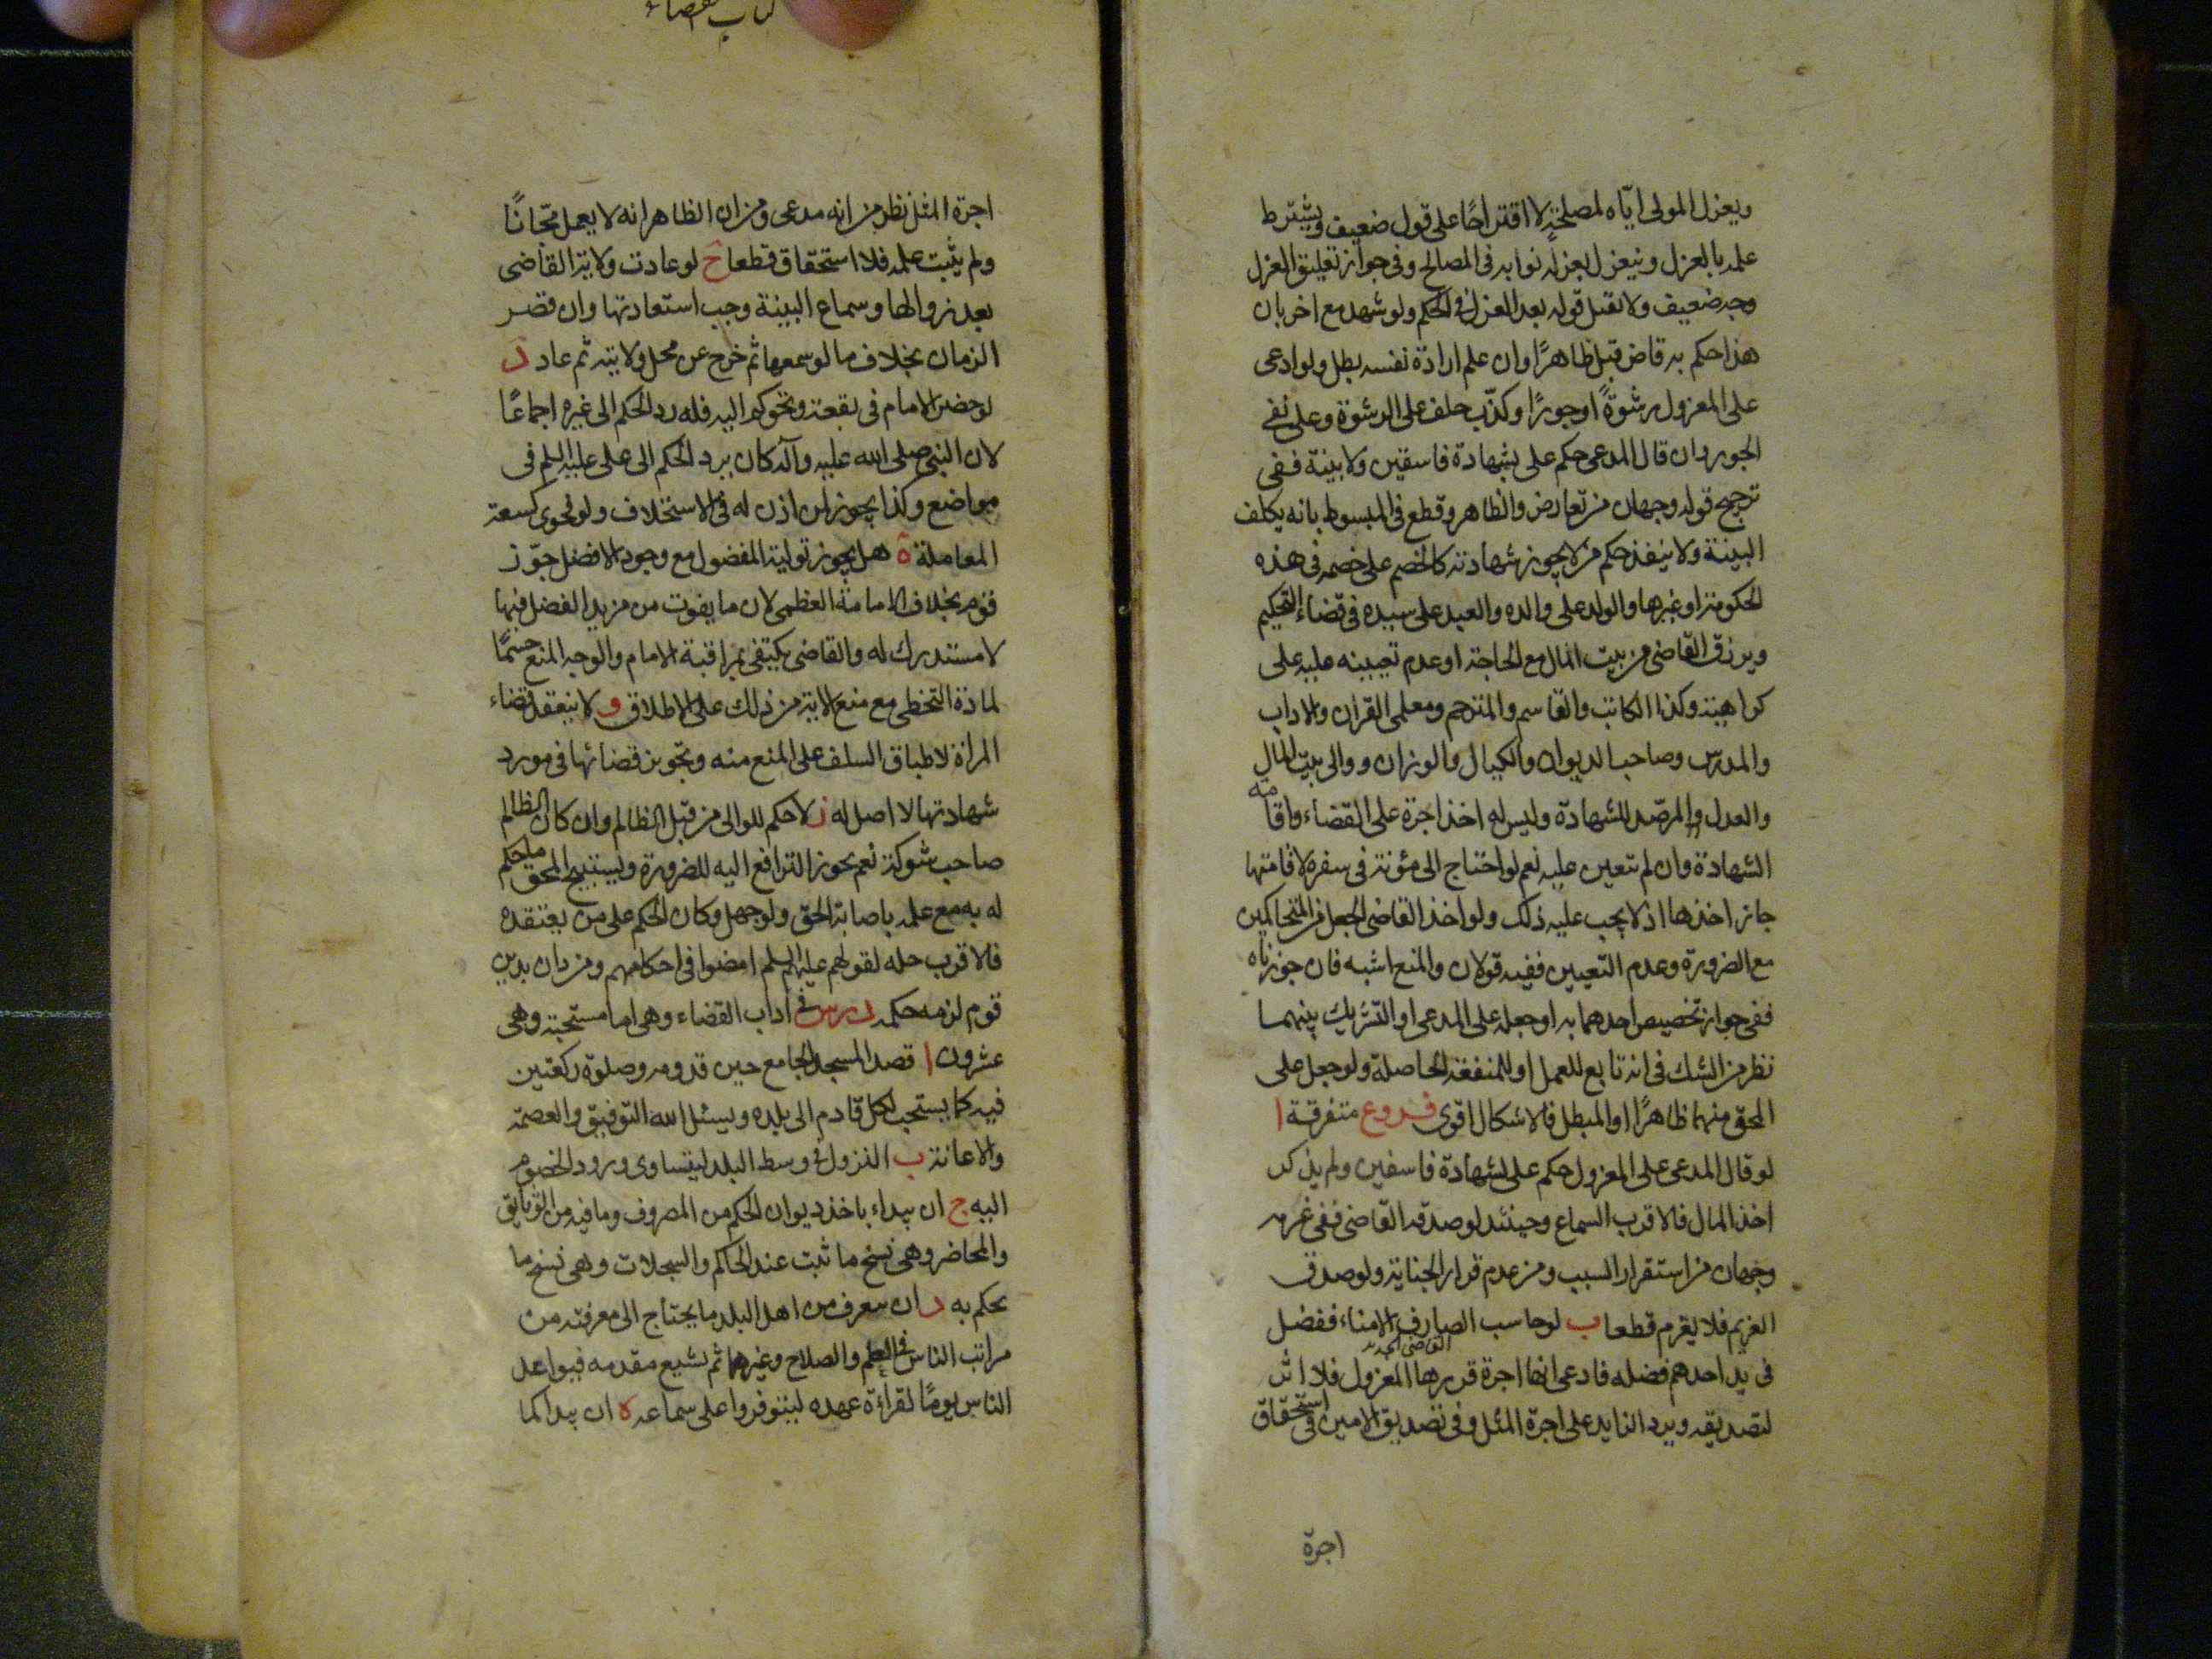 ويعزل المولى اياه لمصلحة لا اقتراحًا على قول ضعيف ويشترط
علمه بالعزل وينعزل بعزله نوابه فى المصالح وفى جواز تعليق العزل
وجه ضعيف ولا يقبل قوله بعد العزل فى الحكم ولو شهد مع اخر بان
هذا حكم به قاض قبل ظاهرًا وان علم ارادة نفسه بطل ولو ادعى
على المعزول برشوةً او جورًا وكذّب حلف على الرشوة وعلى نفى
الجور وان قال المدعى حكم على بشهادة فاسقين ولا بينة ففى
ترجيح قوله وجهان من تعارض والظاهر وقطع فى المبسوط بانه يكلف
البينة ولا ينفذ حكم من لا يجوز شهادته كالخصم على خصمه فى هذه
الحكومة او غيرها والولد على والده والعبد على سيده فى قضاء التحكيم
ويرزق القاضى من بيت المال مع الحاجة او عدم تعيينه عليه على
كراهية وكذا الكاتب والقاسم والمترجم ومعلمى القران والاداب
والمدرس وصاحب الديوان والكيال والوزان ووالى بيت المال
والعدل والمرصّد للشهادة وليس له اخذ اجرة على القضاء واقامة
الشهادة وان لم تتعين عليه نعم لو احتاج الى مؤنة فى سفره لاقامتها
جاز اخذها اذ لا يجب عليه ذلك ولو اخذ القاضى الجعل من المتحاكمين
مع الضرورة وعدم التعيين ففيه قولان والمنع اشبه فان جوزناه
ففى جواز تخصيص احدهما به او جعله على المدعى او التشريك بينهما
نظر من الشك فى انه تابع للعمل او للمنفعة الحاصلة ولو جعل على
المحق منهما ظاهرًا او المبطل فالاشكال اقوى فروع متفرقة ا
لو قال المدعى على المعزول حكم على بشهادة فاسقين ولم يذكر
اخذ المال فالاقرب السماع وحينئذ لو صدقه القاضى ففى غرمه
وجهان من استقرار السبب ومن عدم قرار الجناية ولو صدق
الغريم فلا يغرم قطعا ب لو حاسب الصارف الامناء ففضل
القاضى الجديد
فى يد احدهم فضله فادعى انها اجرة قدرها المعزول فلا اثر
لتصديقه ويرد الزايد على اجرة المثل وفى تصديق الامين فى استحقاق
اجرة
كتاب القضاء
اجرة المثل نظر من انه مدعى ومن ان الظاهر انه لا يعمل مجانًا
ولم يثبت علمه فلا استحقاق قطعا ج لو عادت ولاية القاضى
بعد زوالها وسماع البينة وجب استعادتها وان قصر
الزمان بخلاف ما لو سمعها ثم خرج عن محل ولايته ثم عاد د
لو حضر الامام فى بقعة وتحوكم اليه فله رد الحكم الى غيره اجماعًا
لان النبى صلى الله عليه وآله كان يرد الحكم الى على عليه السلم فى
مواضع وكذا يجوز لمن اذن له فى الاستخلاف ولو لحوى كسعة
المعاملة ة هل يجوز تولية المفضول مع وجود الافضل جوّز
قوم بخلاف الامامة العظمى لان ما يفوت من مزيد الفضل فيها
لا مستدرك له والقاضى يكتفى بمراقبة الامام والوجه المنع حسمًا
لمادة التخطى مع منع الاية من ذلك على الاطلاق و لا ينعقد قضاء
المراة لاطباق السلف على المنع منه وتجويز قضائها فى مورد
شهادتها لا اصل له ز لا حكم للوالى من قبل الظالم وان كان الظالم
صاحب شوكة نعم يجوز الترافع اليه للضرورة ويستبيح المحق ما حكم
له به مع علمه باصابة الحق ولو جهل وكان الحكم على من يعتقده
فالاقرب حله لقولهم عليهم السلم امضوا فى احكامهم ومن دان بدين
قوم لزمه حكمه درس فى اداب القضاء وهى اما مستحبة وهى
عشرون ا قصد المسجد الجامع حين قدومه وصلوة ركعتين
فيه كما يستحب لكل قادم الى بلده ويسئل الله التوفيق والعصمة
والاعانة ب النزول فى وسط البلد ليتساوى ورود الخصوم
اليه ج ان يبداء باخذ ديوان الحكم من المصروف وما فيه من الوثايق
والمحاضر وهى نسخ ما ثبت عند الحاكم والسجلات وهى نسخ ما
يحكم به د ان يعرف من اهل البلد ما يحتاج الى معرفته من
مراتب الناس فى العلم والصلاح وغيرهما ثم يشيع مقدمه فيواعد
الناس يومًا لقراءة عهده ليتوفروا على سماعه ه ان يبدا كما